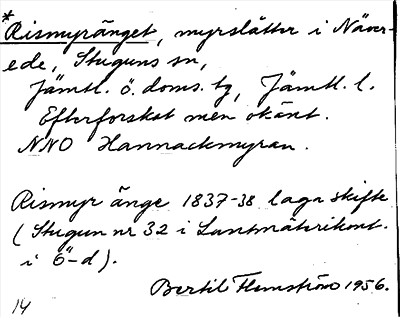 *Rismyränget, myrslåtter i Näver-
ede, Stuguns sn,
Jämtl. ö. doms. tg, Jämtl. l.
Efterforskat men okänt.
NNO Hannackmyran.
Rismyr änge 1837-38 laga skifte
(Stugun nr 32 i Lantmäterikont.
i Ö-d).
Bertil Flemström 1956.
14